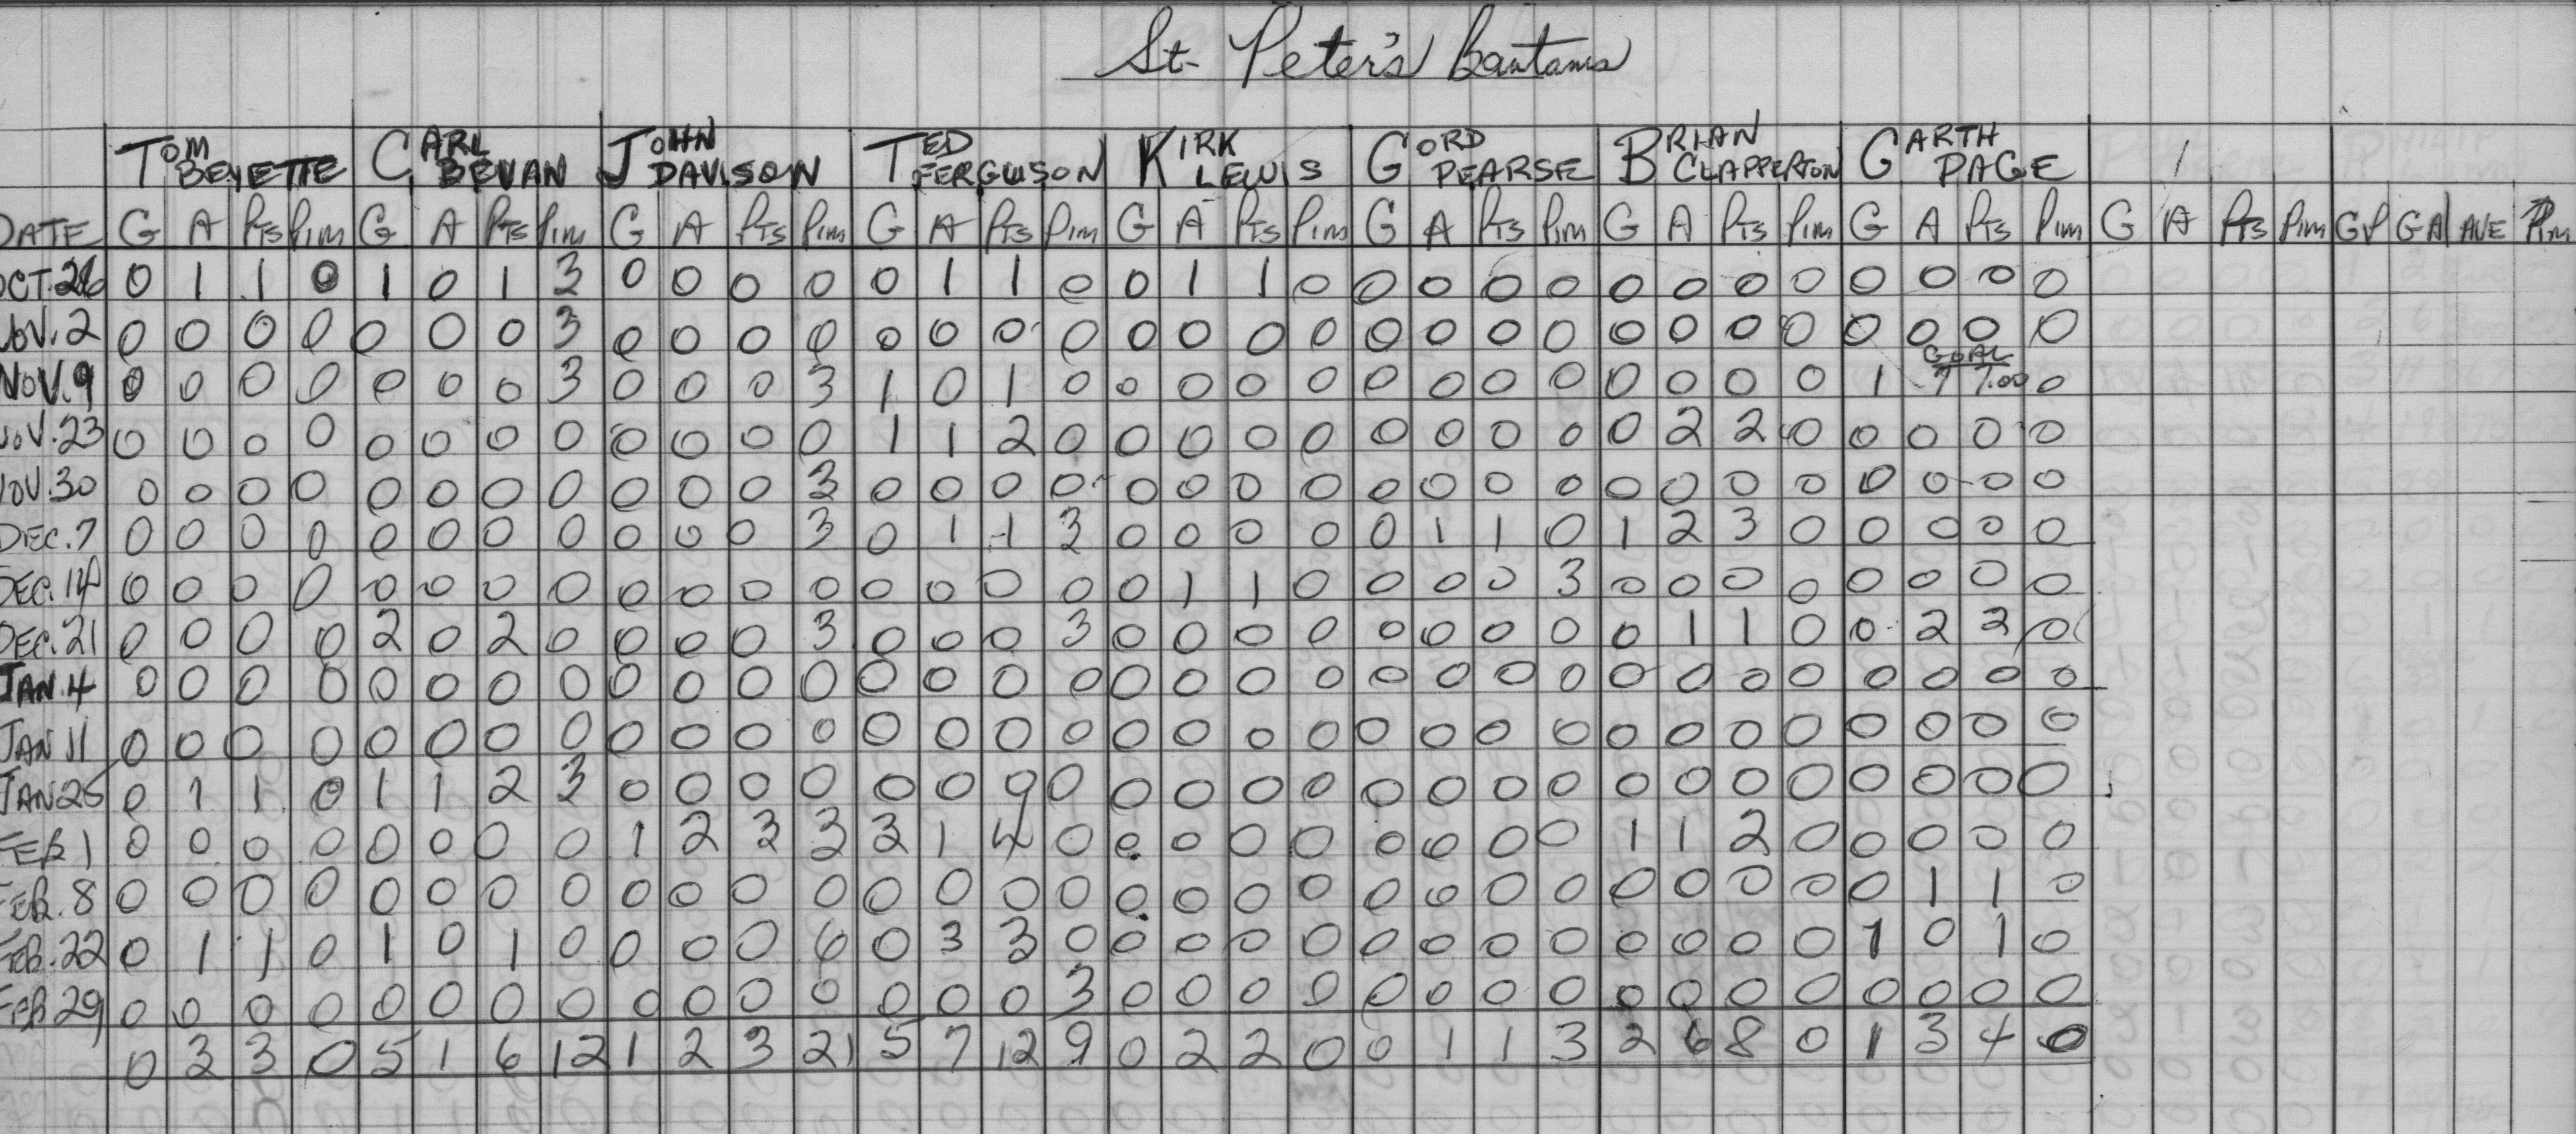 St. Peter's Bantams
TOM BEYETTE CARL BEVAN JOHN DAVISON TED FERGUSON KIRK LEWIS GORD PEARSE BRIAN CLAPPERTON GARTH PAGE
DATE G A Pts Pim G A Pts Pim G A Pts Pim G A Pts Pim G A Pts Pim G A Pts Pim G A Pts Pim G A Pts Pim G A Pts Pim GP GA AVE Pim
OCT. 26 0 1 1 0 1 0 1 3 0 0 0 0 0 1 1 0 0 1 1 0 0 0 0 0 0 0 0 0 0 0 0 0
NOV. 2 0 0 0 0 0 0 0 3 0 0 0 0 0 0 0 0 0 0 0 0 0 0 0 0 0 0 0 0 0 0 0 0
GOAL
NOV. 9 0 0 0 0 0 0 0 3 0 0 0 3 1 0 1 0 0 0 0 0 0 0 0 0 0 0 0 0 1 7 7.00 0
NOV. 23 0 0 0 0 0 0 0 0 0 0 0 0 1 1 2 0 0 0 0 0 0 0 0 0 0 2 2 0 0 0 0 0
NOV. 30 0 0 0 0 0 0 0 0 0 0 0 3 0 0 0 0 0 0 0 0 0 0 0 0 0 0 0 0 0 0 0 0
DEC. 7 0 0 0 0 0 0 0 0 0 0 0 3 0 1 1 3 0 0 0 0 0 1 1 0 1 2 3 0 0 0 0 0
DEC. 14 0 0 0 0 0 0 0 0 0 0 0 0 0 0 0 0 0 1 1 0 0 0 0 3 0 0 0 0 0 0 0 0
DEC. 21 0 0 0 0 2 0 2 0 0 0 0 3 0 0 0 3 0 0 0 0 0 0 0 0 0 1 1 0 0 2 2 0
JAN. 4 0 0 0 0 0 0 0 0 0 0 0 0 0 0 0 0 0 0 0 0 0 0 0 0 0 0 0 0 0 0 0 0
JAN 11 0 0 0 0 0 0 0 0 0 0 0 0 0 0 0 0 0 0 0 0 0 0 0 0 0 0 0 0 0 0 0 0
JAN 25 0 1 1 0 1 1 2 3 0 0 0 0 0 0 0 0 0 0 0 0 0 0 0 0 0 0 0 0 0 0 0 0
FEB 1 0 0 0 0 0 0 0 0 1 2 3 3 3 1 4 0 0 0 0 0 0 0 0 0 1 1 2 0 0 0 0 0
FEB. 8 0 0 0 0 0 0 0 0 0 0 0 0 0 0 0 0 0 0 0 0 0 0 0 0 0 0 0 0 0 1 1 0
FEB. 22 0 1 1 0 1 0 1 0 0 0 0 6 0 3 3 0 0 0 0 0 0 0 0 0 0 0 0 0 1 0 1 0
FEB 29 0 0 0 0 0 0 0 0 0 0 0 0 0 0 0 3 0 0 0 0 0 0 0 0 0 0 0 0 0 0 0 0
0 3 3 0 5 1 6 12 1 2 3 21 5 7 12 9 0 2 2 0 0 1 1 3 2 6 8 0 1 3 4 0